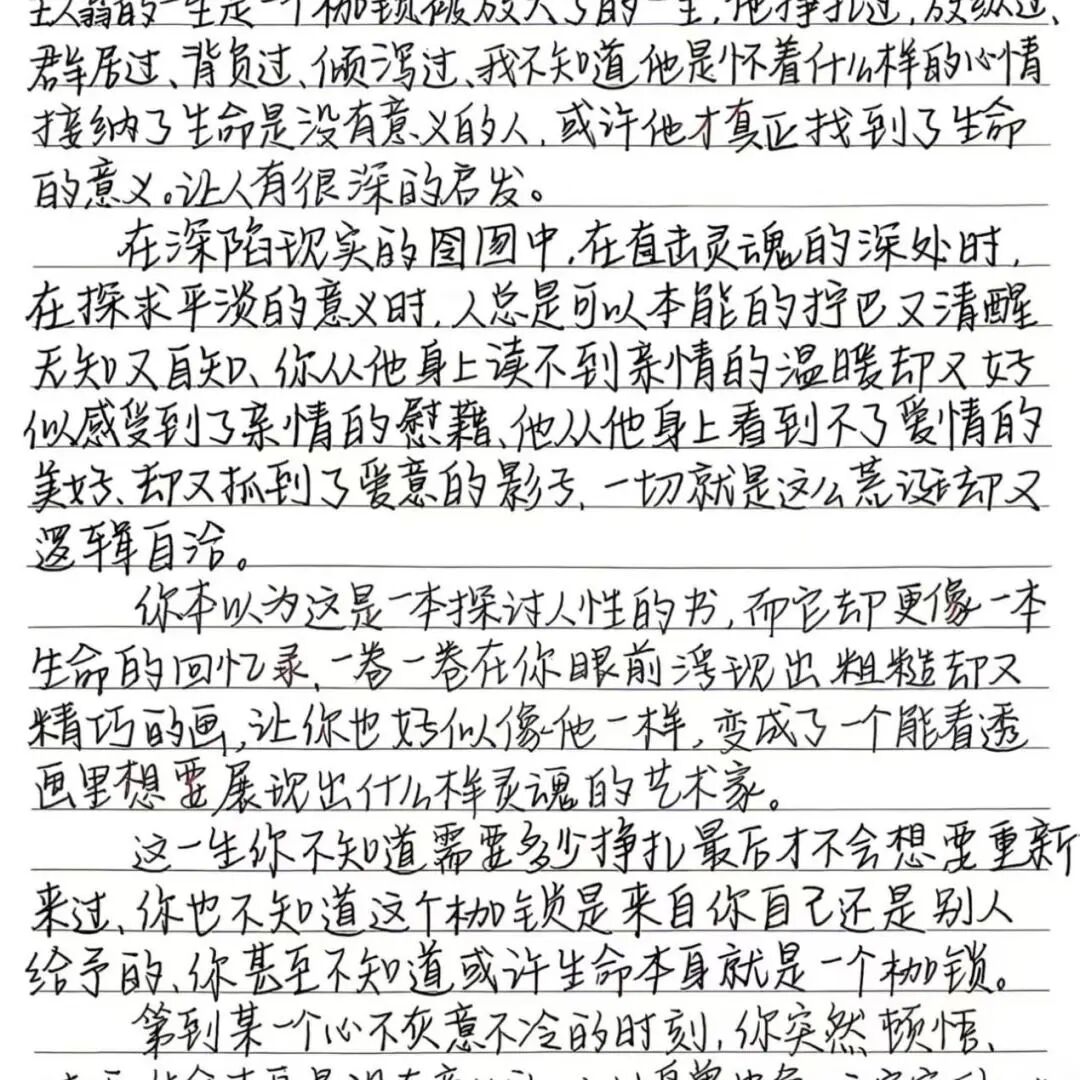 的一生是一个枷锁被放大了的一生,他挣扎过,放纵过、
群居过、背负过、倾泻过、我不知道他是怀着什么样的心情
接纳了生命是没有意义的人,或许他才真正找到了生命
的意义。让人有很深的启发。
在深陷现实的囹圄中,在直击灵魂的深处时,
在探求平淡的意义时,人总是可以本能的拧巴又清醒
无知又自知、你从他身上读不到亲情的温暖却又好
似感受到了亲情的慰藉、他从他身上看到不了爱情的
美好、却又抓到了爱意的影子,一切就是这么荒诞却又
逻辑自洽。
你本以为这是一本探讨人性的书,而它却更像一本
生命的回忆录,一卷一卷在你眼前浮现出粗糙却又
精巧的画,让你也好似像他一样,变成了一个能看透
画里想要展现出什么样灵魂的艺术家。
这一生你不知道需要多少挣扎最后才不会想要重新
来过、你也不知道这个枷锁是来自你自己还是别人
给予的、你甚至不知道或许生命本身就是一个枷锁。
第到某一个心不灰意不冷的时刻,你突然顿悟、